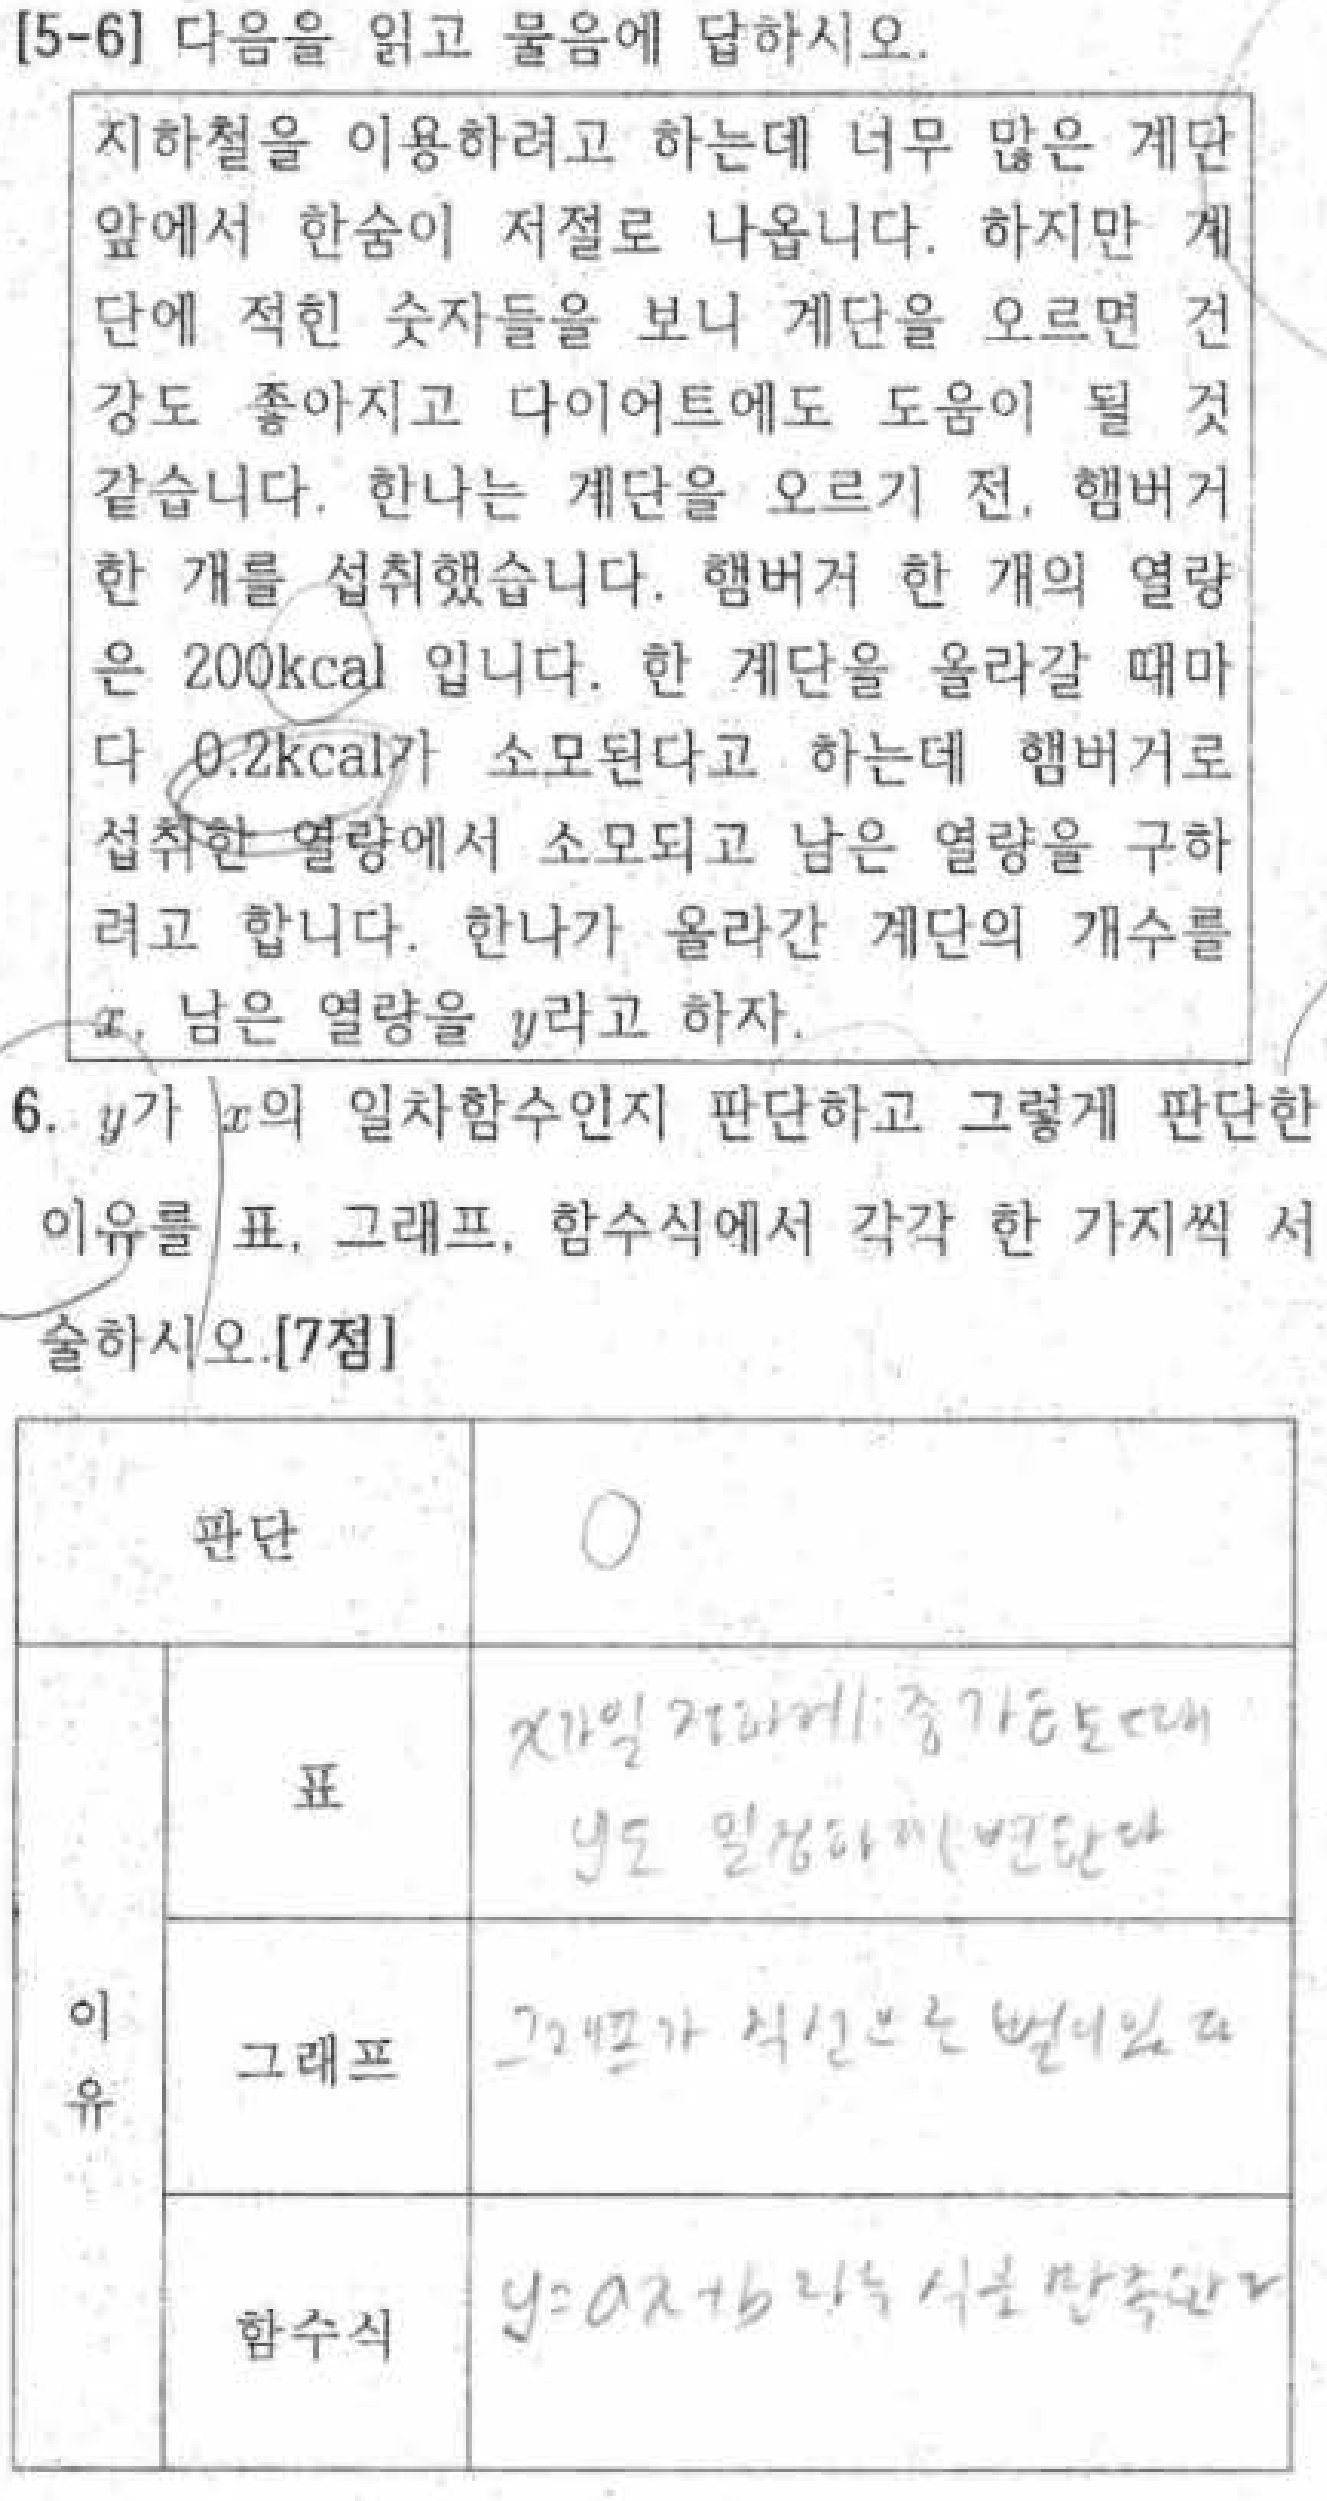 [5-6] 다음을 읽고 물음에 답하시오.
지하철을 이용하려고 하는데 너무 많은 계단
앞에서 한숨이 저절로 나옵니다. 하지만 계
단에 적힌 숫자들을 보니 계단을 오르면 건
강도 좋아지고 다이어트에도 도움이 될 것
같습니다. 한나는 계단을 오르기 전, 햄버거
한 개를 섭취했습니다. 햄버거 한 개의 열량
은 200kcal 입니다. 한 계단을 올라갈 때마
다 0.2kcal가 소모된다고 하는데 햄버거로
섭취한 열량에서 소모되고 남은 열량을 구하
려고 합니다. 한나가 올라간 계단의 개수를
x, 남은 열량을 y라고 하자.
6. y가 x의 일차함수인지 판단하고 그렇게 판단한
이유를 표, 그래프, 함수식에서 각각 한 가지씩 서
술하시오.[7점]
판단 O
이유
표
x가 일정하게 증가 때
y도 일정하게 변한다
그래프
그래프가 직선으로
함수식
y=ax+b 라는 식을 만족한다